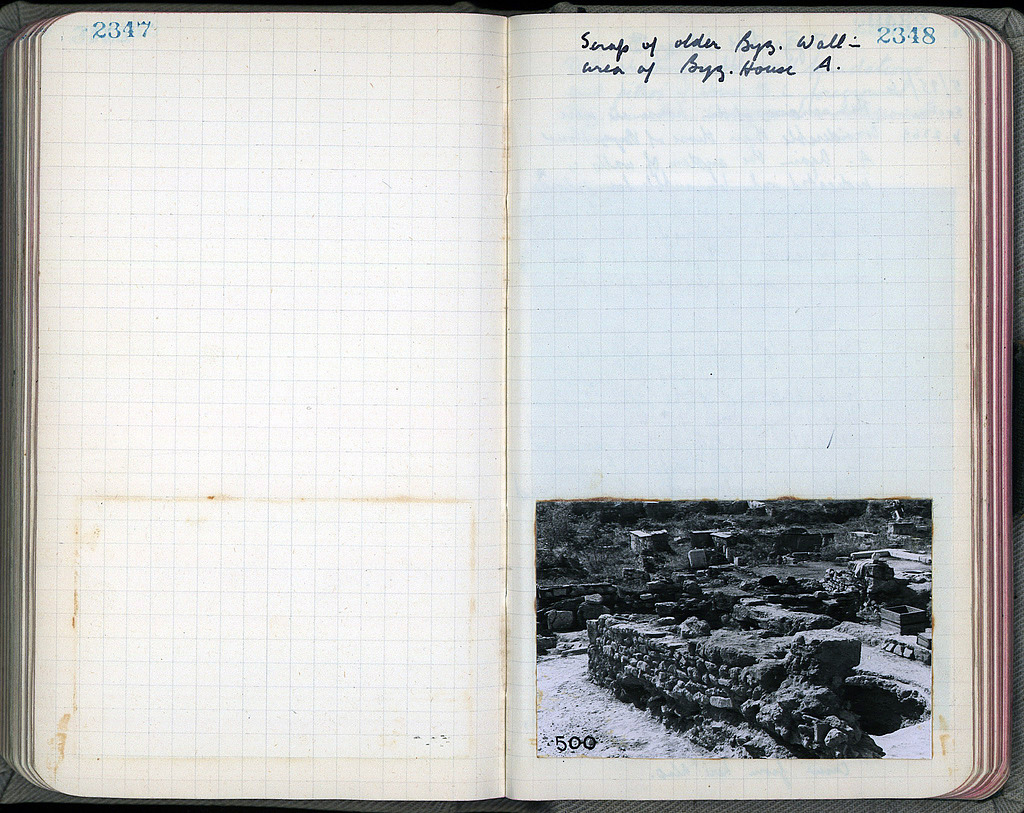 2347
2348
Scrap of older Byz. Wall -
area of Byz. House A.
500